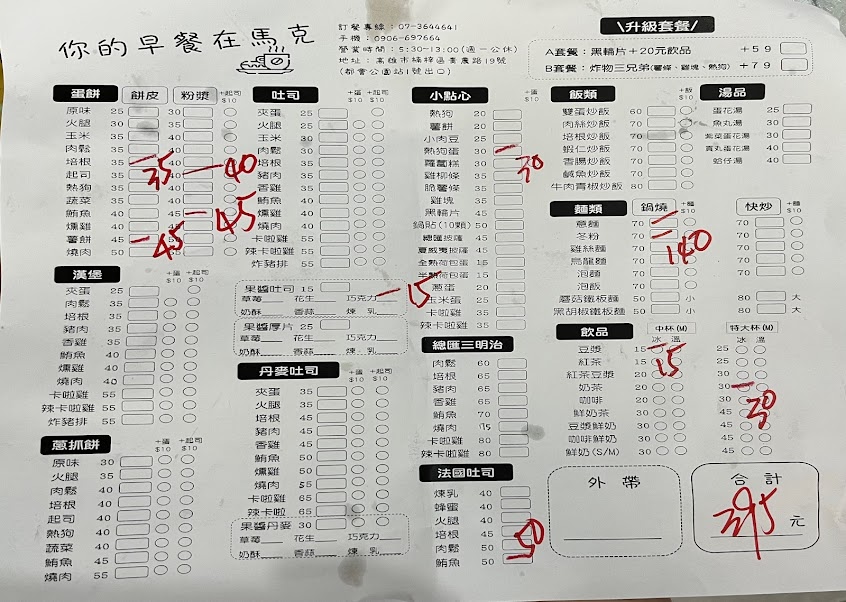 你的早餐在馬克
訂餐專線：07-3644641
手機：0906-697664
營業時間：5:30-13:00(週一公休)
地址：高雄市楠梓區青農路19號
(都會公園站1號出口)
\升級套餐/
A套餐：黑輪片＋20元飲品 +59
B套餐：炸物三兄弟(薯條、雞塊、熱狗) +79
蛋餅 餅皮 粉漿 +起司 $10
原味 25 30
火腿 30
玉米 30
肉鬆
培根
起司 35
熱狗
蔬菜
鮪魚 40
燻雞 40
薯餅 45 50
燒肉 50
35
40
45
45
漢堡 +蛋 +起司 $10
夾蛋 25
肉鬆 35
培根 35
豬肉 35
香雞 35
鮪魚 40
燻雞 40
燒肉 40
卡啦雞 55
辣卡啦雞 55
炸豬排 55
蔥抓餅 +蛋 +起司 $10
原味 30
火腿 35
肉鬆 40
培根 40
起司 40
熱狗 40
蔬菜 40
鮪魚 45
燒肉 55
吐司 +蛋 +起司 $10
夾蛋 25
火腿 25
玉米 30
肉鬆 30
培根 35
豬肉 35
香雞 35
鮪魚 35
燻雞 40
燒肉 40
卡啦雞 55
辣卡啦雞 55
炸豬排 55
果醬吐司 15
草莓 花生 巧克力
奶酥 香蒜 煉 乳
15
果醬厚片 25
草莓 花生 巧克力
奶酥 香蒜 煉 乳
丹麥吐司 +蛋 +起司 $10
夾蛋 35
火腿 35
培根 45
豬肉 45
香雞 45
鮪魚 50
燻雞 50
燒肉 55
卡啦雞 65
辣卡啦 65
果醬丹麥 30
草莓 花生 巧克力
奶酥 香蒜 煉 乳
小點心 +蛋 +起司 $10
熱狗 20
薯餅 20
小肉豆 25
熱狗蛋 30
蘿蔔糕 30
雞柳條 35
脆薯條 35
雞塊 35
黑輪片 45
鍋貼(10顆) 50
總匯披薩 45
夏威夷披薩 45
全熟荷包蛋
半熟荷包蛋
蔥蛋 20
玉米蛋
卡啦雞 45
辣卡啦雞 45
30
總匯三明治
肉鬆 60
培根 65
豬肉 65
香雞 65
鮪魚 70
燒肉
卡啦雞 80
辣卡啦雞 80
法國吐司
煉乳 40
蜂蜜 40
火腿 40
培根 45
肉鬆 50
鮪魚 50
50
飯類 +飯 $10
雙蛋炒飯 60
肉絲炒飯 70
培根炒飯 70
蝦仁炒飯 70
香腸炒飯 70
鹹魚炒飯 70
牛肉青椒炒飯 80
湯品
蛋花湯 25
魚丸湯 30
紫菜蛋花湯 30
貢丸蛋花湯 40
蛤仔湯 40
麵類 鍋燒 +麵 $10 快炒 +麵 $10
意麵 70 70
冬粉 70 70
雞絲麵 70 70
烏龍麵 70 70
泡麵 70
泡飯 70
蘑菇鐵板麵 50 小 80 大
黑胡椒鐵板麵 50 小 80 大
140
飲品 中杯(M) 特大杯(M)
冰 溫 冰 溫
豆漿 15 25
紅茶 15 25
紅茶豆漿 30
奶茶 20 30
咖啡 20 30
鮮奶茶 30 45
豆漿鮮奶 30 45
咖啡鮮奶 30 45
鮮奶(S/M) 30 60
15
30
外 帶
合 計
395 元